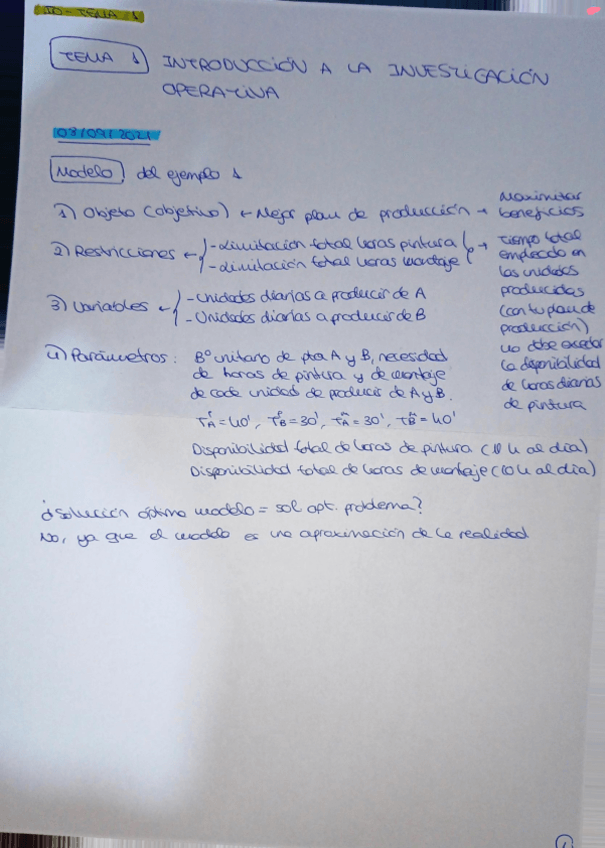 IO - TEMA 1
TEMA 1 INTRODUCCIÓN A LA INVESTIGACIÓN
OPERATIVA
08/09/2021
Modelo del ejemplo 1
1) Objeto (objetivo) ← Mejor plan de producción → Maximizar
beneficios
2) Restricciones ← { - Limitación total horas pintura
- Limitación total horas montaje } → Tiempo total
empleado en
las unidades
producidas
(con tu plan de
producción)
no debe exceder
la disponibilidad
de horas diarias
de pintura
3) Variables ← { - Unidades diarias a producir de A
- Unidades diarias a producir de B
4) Parámetros: Bº unitario de pta A y B, necesidad
de horas de pintura y de montaje
de cada unidad de producir de A y B.
T_A^P = 40', T_B^P = 30', T_A^M = 30', T_B^M = 40'
Disponibilidad total de horas de pintura (10 h al día)
Disponibilidad total de horas de montaje (10 h al día)
¿Solución óptima modelo = sol opt. problema?
No, ya que el modelo es una aproximación de la realidad
1